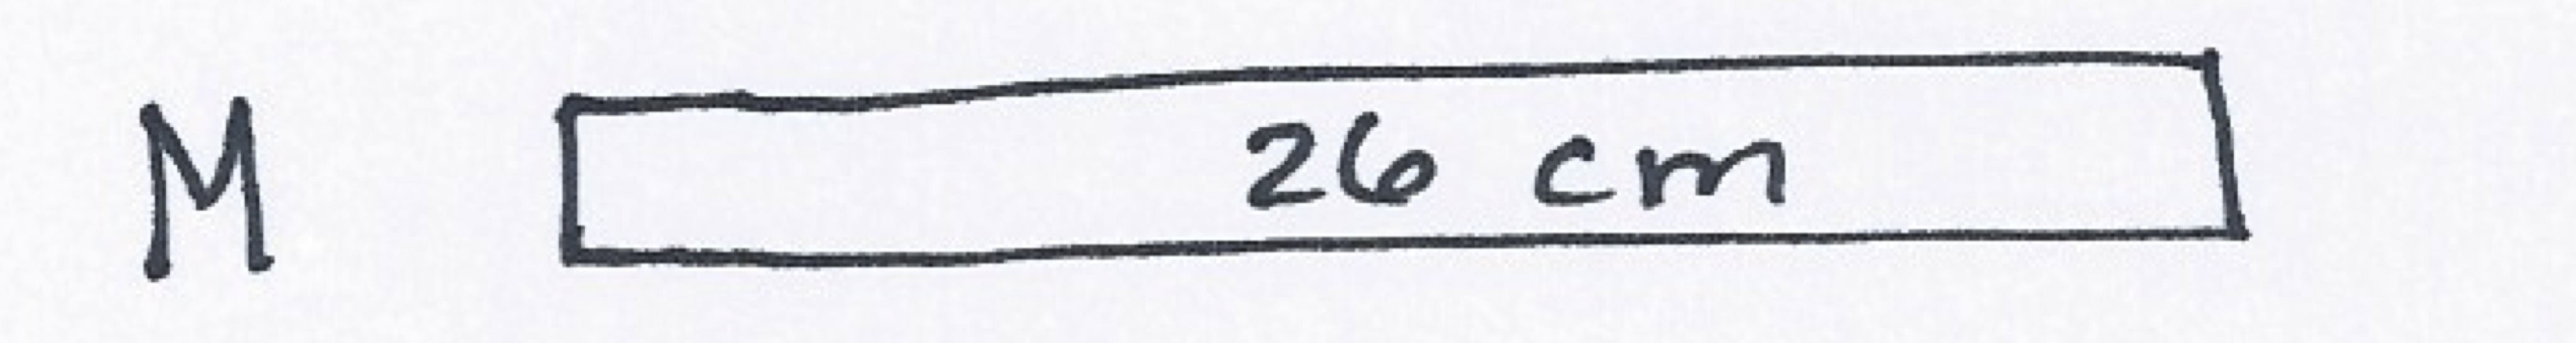 M 26 cm